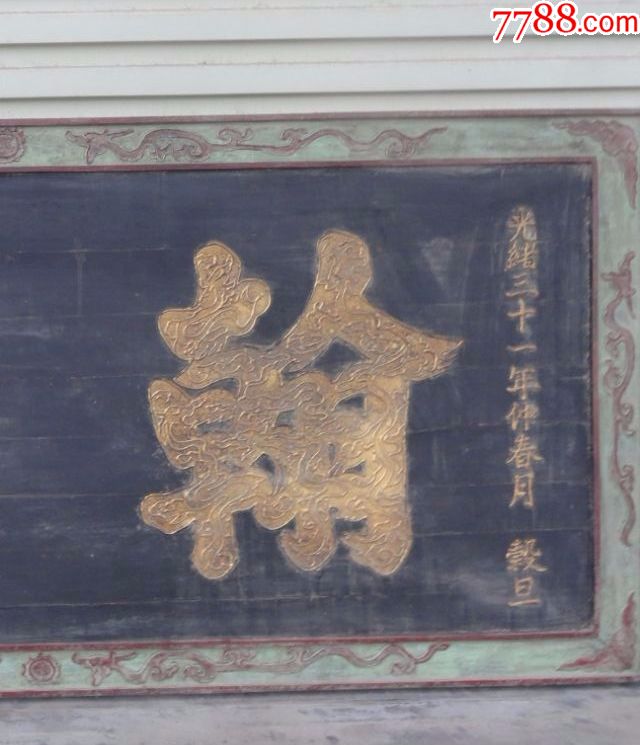 7788.com
光緒三十一年仲春月 穀旦
翰